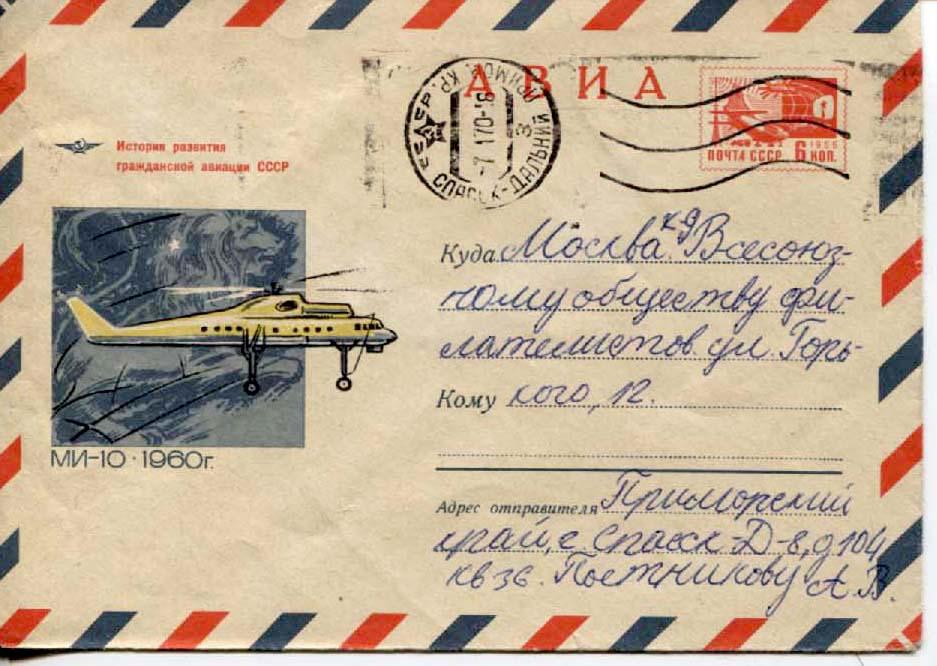 АВИА
ПРИМОР. КР.
СПАССК-ДАЛЬНИЙ
-7 1 70-18
3
ПОЧТА СССР 6 КОП.
1966
История развития
гражданской авиации СССР
МИ-10 · 1960г.
Куда Москва к-9 Всесоюз-
ному обществу фи-
лателистов ул. Горь-
Кому кого, 12.
Адрес отправителя Приморский
край, г. Спасск-Д-8, д 104
кв 36. Постникову А. В.